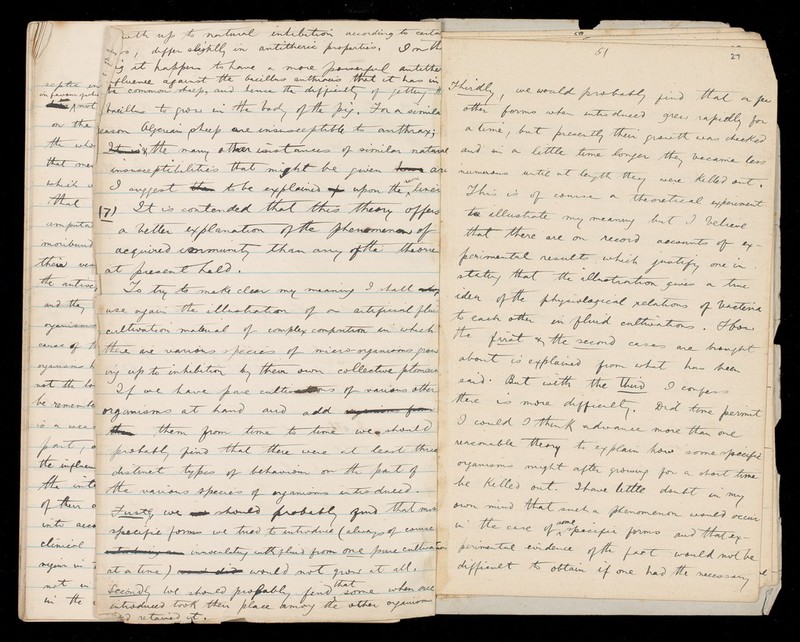 septic
in favour of
not
on the
the who
that mer
which
that
amputa
moribund
their
the antisep
and they
organisms
cause of th
organisms
not the
be remembe
is a
part,
the influen
the
of their
into acco
clinical
organ in
not in
in the
with up to natural inhibition according to certa
differ slightly in antitheric properties. I on th
it happens to have a more powerful antithe
influence against the bacillus anthracis that it has in
the common sheep and hence the difficulty of getting th
bacillus to grow in the body of the pig. For a simila
reason Algerian sheep are insusceptible to anthrax;
It is & the many other instances of similar natural
insusceptibilities that might be given are
I suggest to be explained upon the lines
(7) It is contended that this theory offers
a better explanation of the phenomenon of
acquired immunity than any of the theories
at present held.
To try to make clear my meaning I shall
use again the illustration of an artificial flui
cultivation material of complex composition in which
there are various species of micro-organisms grow
ing up to inhibition by their own collective ptomaines
If we have pure cultivations of various other
organisms at hand and add organisms from
the them from time to time we should
probably find that there were at least three
distinct types of behaviour on the part of
the various species of organisms introduced.
Firstly we should probably find that most
specific forms we tried to introduce (always of course
inoculating with fluid from one pure cultivation
at a time) would not grow at all.
Secondly we should probably find that some when once
introduced took their place among the other organisms
and retained it.
51
27
Thirdly, we would probably find that a few
other forms when introduced grew rapidly for
a time, but presently their growth was checked
and in a little time longer they became less
numerous until at length they were killed out.
This is of course a theoretical experiment
to illustrate my meaning but I believe
that there are on record accounts of ex-
perimental results which justify one in
stating that the illustration gives a true
idea of the physiological relations of bacteria
to each other in fluid cultivations. How
the first & the second cases are brought
about is explained from what has been
said. But with the third I confess
there is more difficulty. Did time permit
I could I think advance more than one
reasonable theory to explain how some specific
organisms might after growing for a short time
be killed out. I have little doubt in my
own mind that such a phenomenon would occur
in the case of some specific forms and that ex-
perimental evidence of the fact would not be
difficult to obtain if one had the necessary